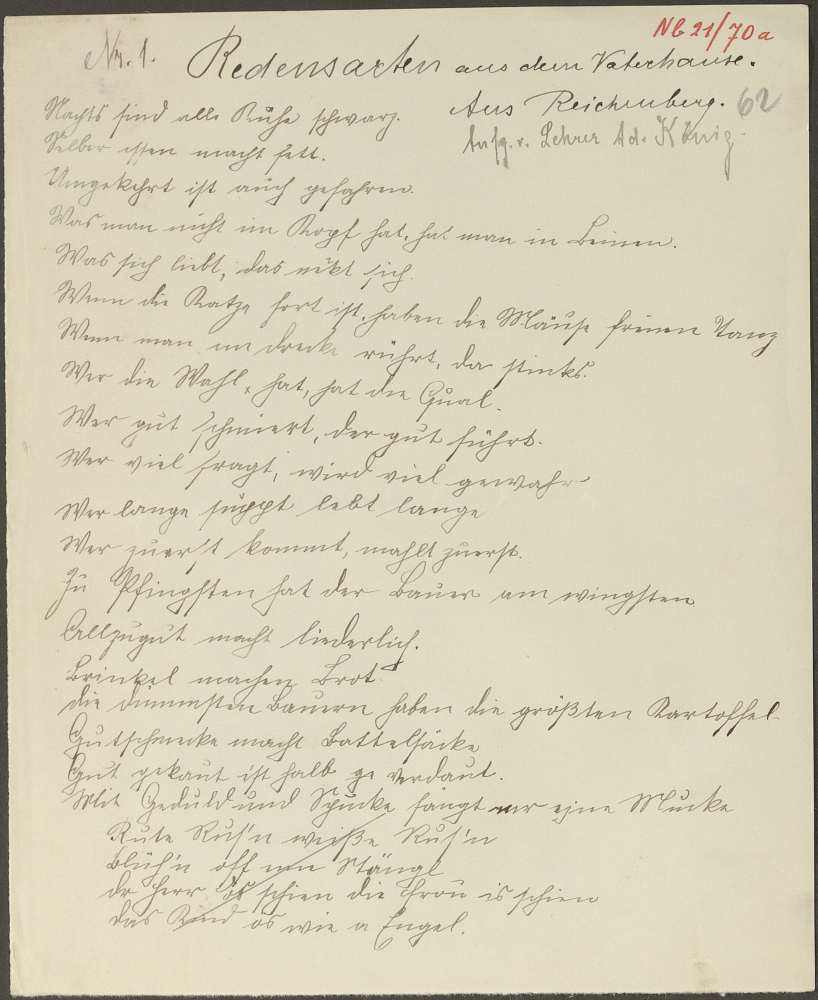 Nr. 1.
NB 21/70a
Redensarten aus dem Vaterhause.
Aus Reichenberg. 62
Aufg. v. Lehrer Ad. König.
Nachts sind alle Kühe schwarz.
Selber essen macht fett.
Umgekehrt ist auch gefahren.
Was man nicht im Kopf hat, hat man in Beinen.
Was sich liebt, das nekt sich.
Wenn die Katze fort ist, haben die Mäuse freien Tanz
Wenn man im Drecke rührt, da stinkts.
Wer die Wahl, hat, hat die Qual.
Wer gut schmiert, der gut führt.
Wer viel fragt, wird viel gewahr
Wer lange suppt lebt lange
Wer zuerst kommt, mahlt zuerst.
Zu Pfingsten hat der Bauer am wingsten
Allzugut macht liederlich.
Brinkel machen Brot
die dümmsten Bauern haben die größten Kartoffel
Gutschmecke macht Battelsäcke
Gut gekaut ist halb ge verdaut.
Mit Geduld und Spucke fängt mr ejne Mucke
Rute Rus'n weiße Rus'n
Blüh'n off Stängl
dr Herr ös schien die Frou is schien
das Kind os wie a Engel.